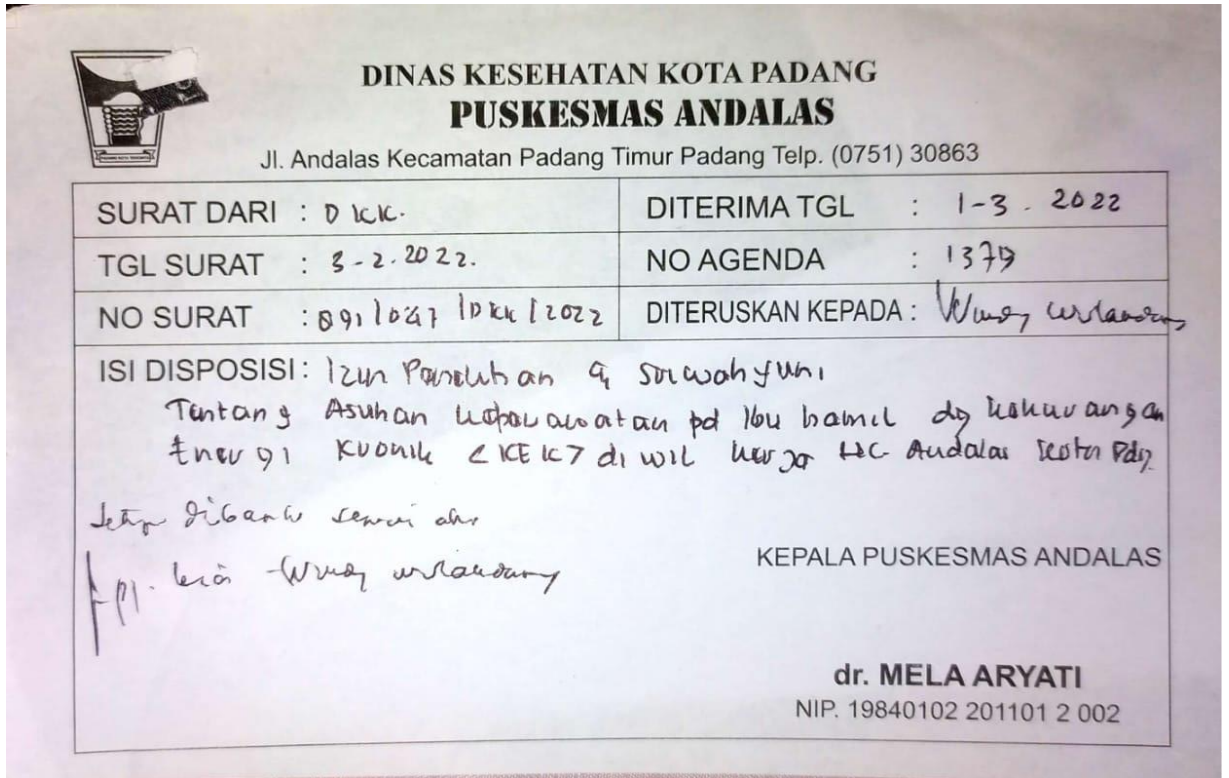 DINAS KESEHATAN KOTA PADANG
PUSKESMAS ANDALAS
Jl. Andalas Kecamatan Padang Timur Padang Telp. (0751) 30863
SURAT DARI : DKK.
DITERIMA TGL : 1-3. 2022
TGL SURAT : 3-2.2022.
NO AGENDA : 1379
NO SURAT : 891/0247/DKK/2022
DITERUSKAN KEPADA :
ISI DISPOSISI : Izin Penelitian Sri wahyuni
Tentang Asuhan keperawatan pd Ibu hamil dg kekurangan
Energi Kronik <KEK> di wil kerja HC Andalas Kota Pdg
KEPALA PUSKESMAS ANDALAS
dr. MELA ARYATI
NIP. 19840102 201101 2 002